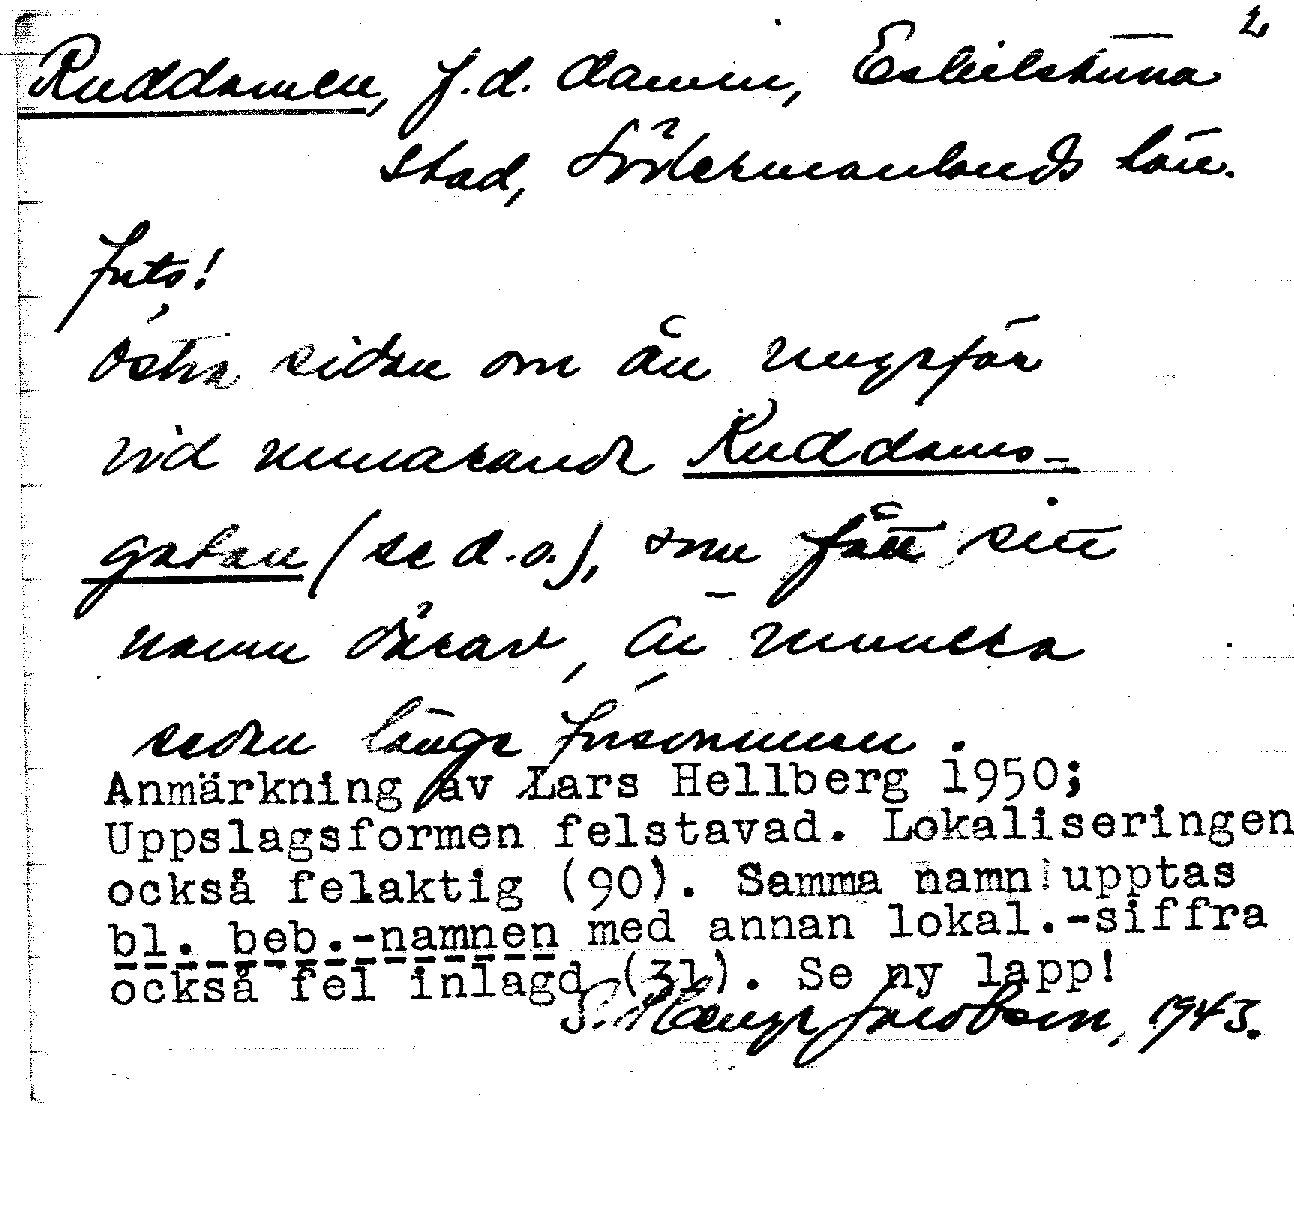 2
Ruddamen, f.d. damm, Eskilstuna
stad, Södermanlands län.
forts!
Östra sidan om ån ungefär
vid nuvarande Ruddams-
gatan (se d.o.), som fått sitt
namn därav, är numera
sedan länge försvunnen.
Anmärkning av Lars Hellberg 1950;
Uppslagsformen felstavad. Lokaliseringen
också felaktig (90). Samma namn upptas
bl. beb.-namnen med annan lokal.-siffra
också fel inlagd (31). Se ny lapp!
Jacobson, 1943.